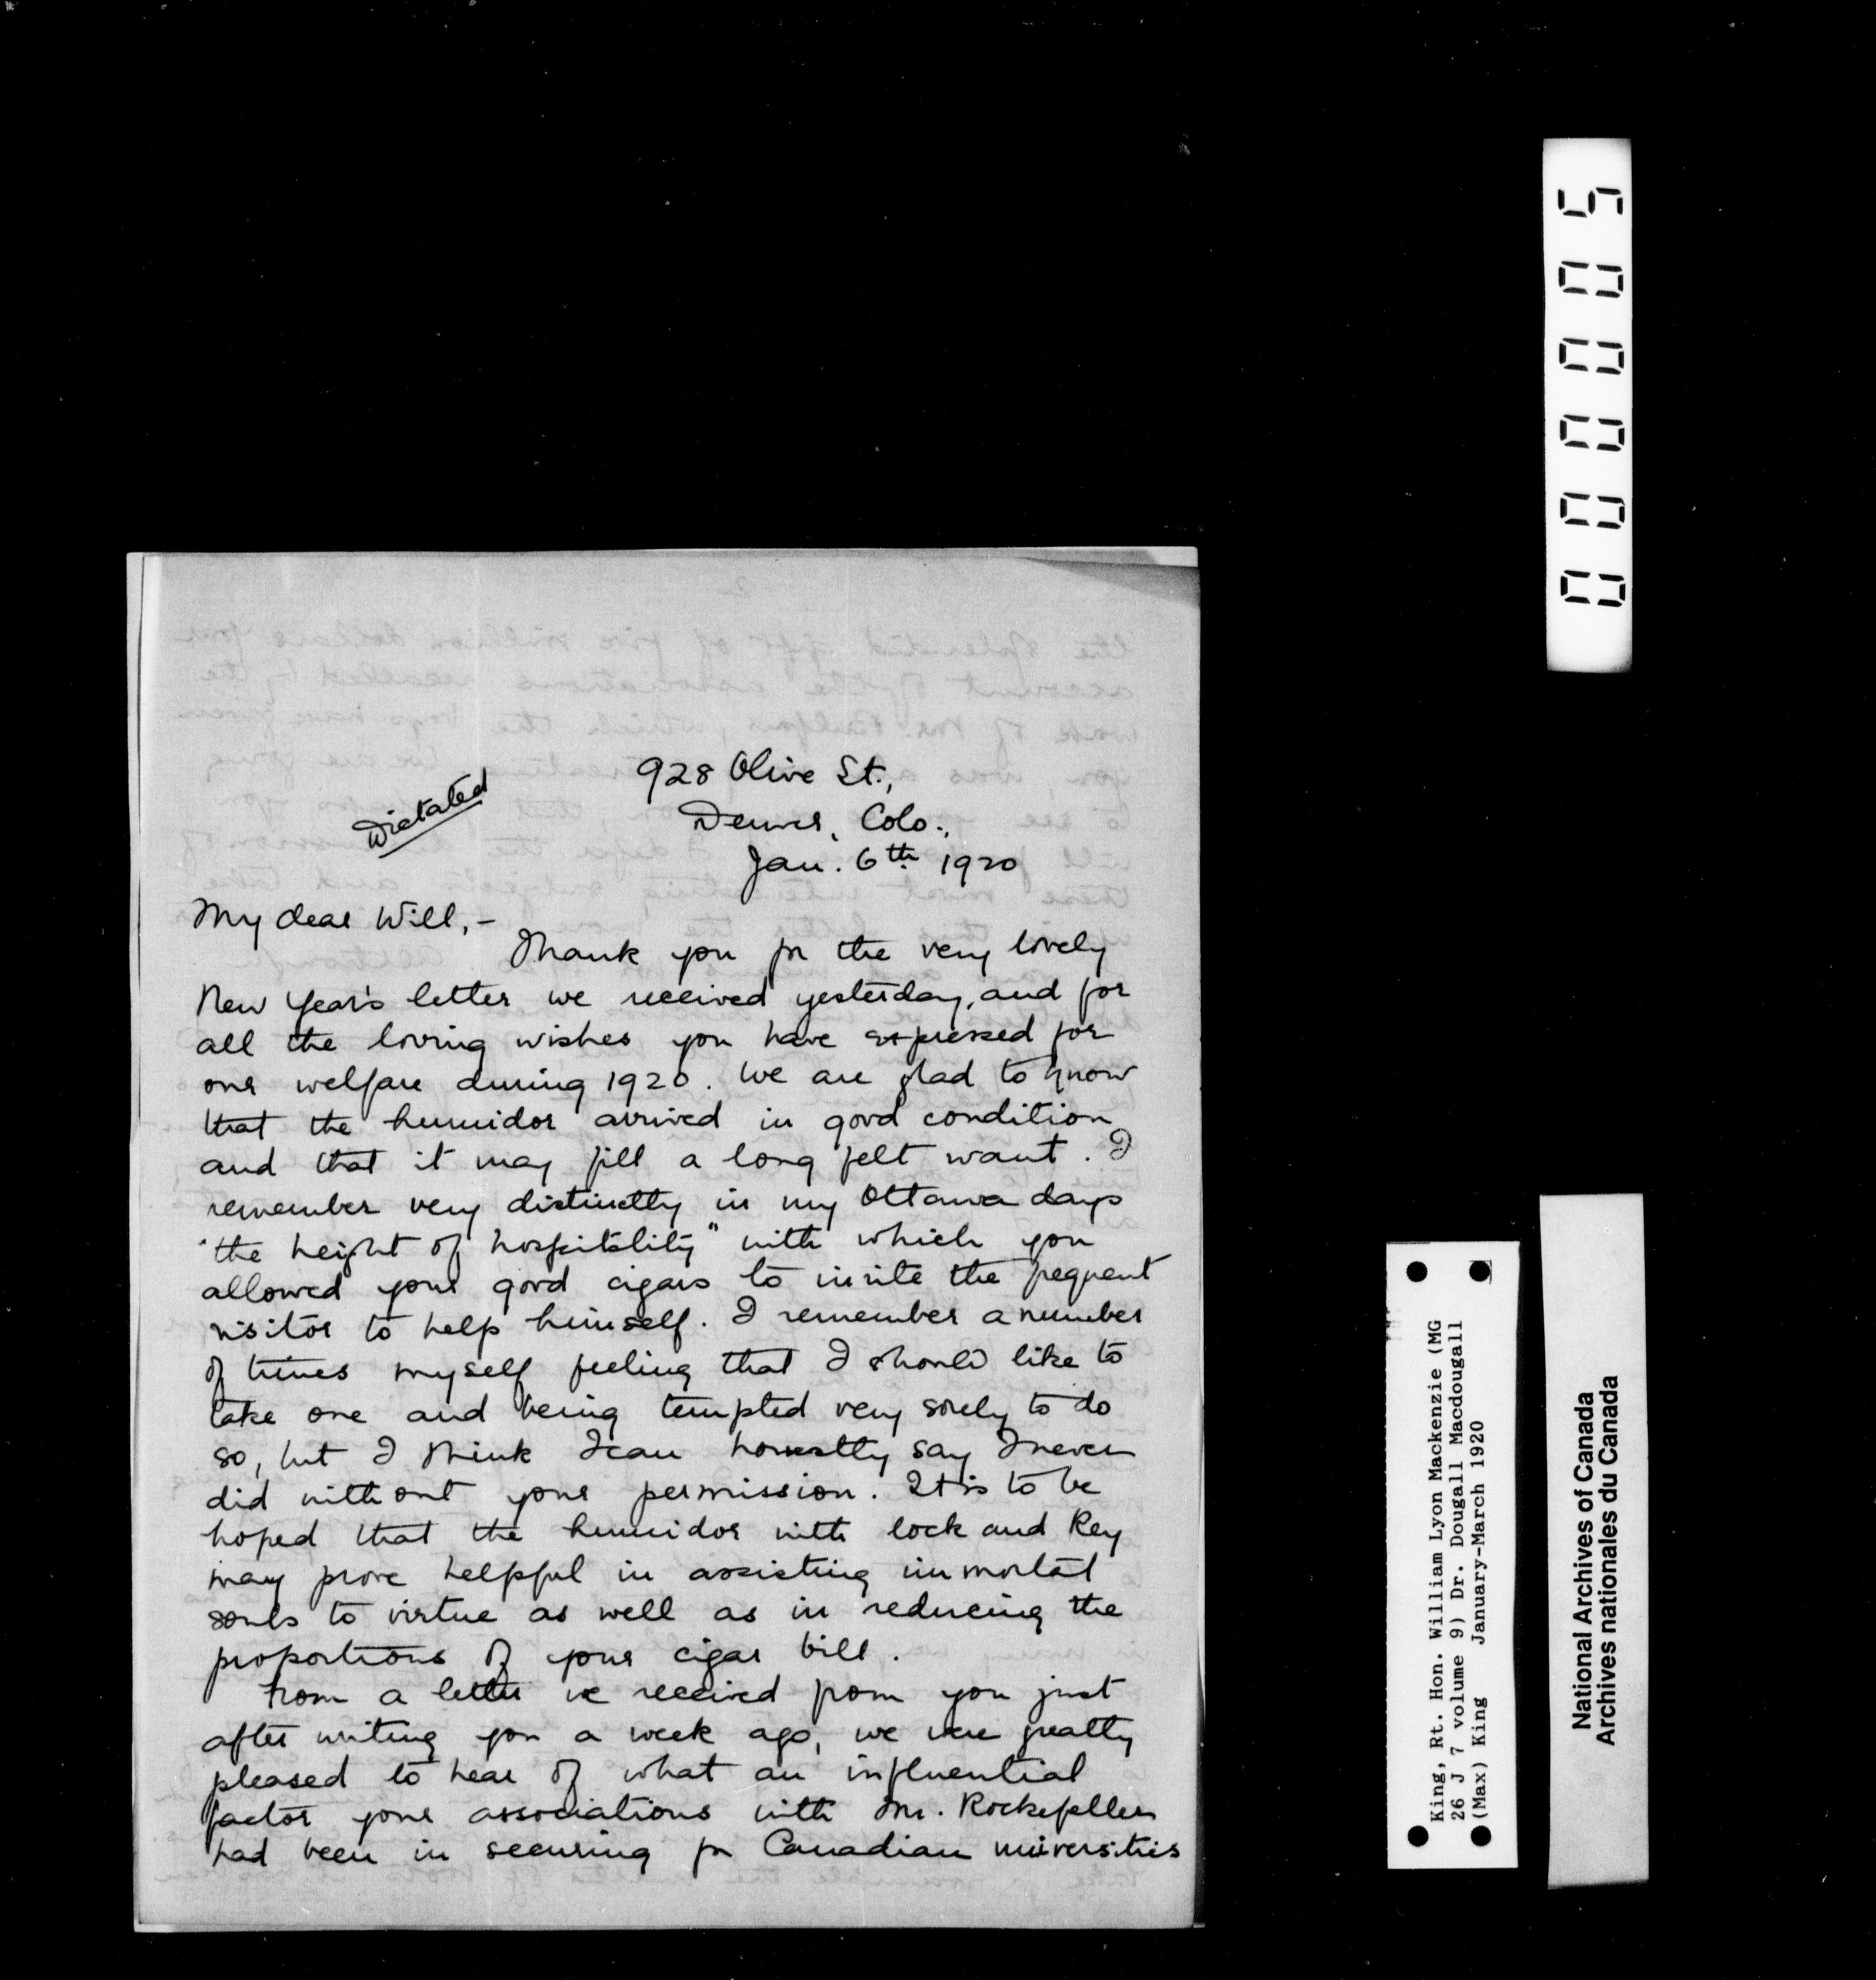 Dictated
928 Olive St.,
Denver, Colo.,
Jan. 6th 1920
My dear Will,-
Thank you for the very lovely
New Year's letter we received yesterday, and for
all the loving wishes you have expressed for
our welfare during 1920. We are glad to know
that the humidor arrived in good condition
and that it may fill a long felt want. I
remember very distinctly in my Ottawa days
"the height of hospitality" with which you
allowed your good cigars to invite the frequent
visitor to help himself. I remember a number
of times myself feeling that I should like to
take one and being tempted very sorely to do
so, but I think I can honestly say I never
did without your permission. It is to be
hoped that the humidor with lock and key
may prove helpful in assisting immortal
souls to virtue as well as in reducing the
proportions of your cigar bill.
From a letter we received from you just
after writing you a week ago, we were greatly
pleased to hear of what an influential
factor your associations with Mr. Rockefeller
had been in securing for Canadian universities
000005
King, Rt. Hon. William Lyon Mackenzie (MG
26 J 7 volume 9) Dr. Dougall Macdougall
(Max) King January-March 1920
National Archives of Canada
Archives nationales du Canada